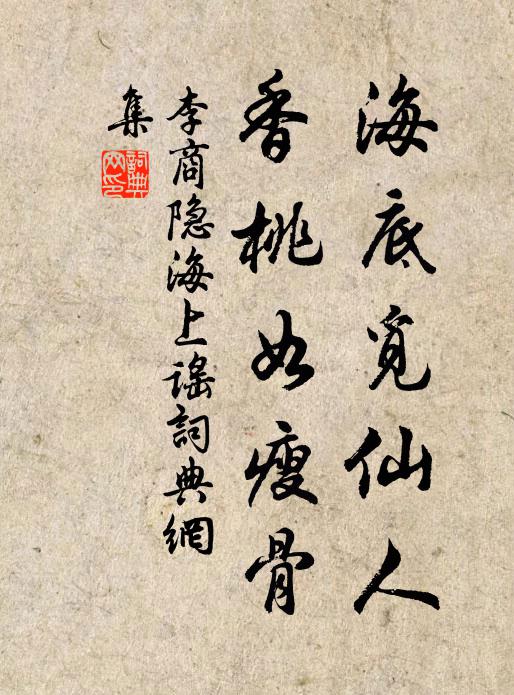 海底覓仙人
香桃如瘦骨
李商隐海上謠詞典網
集
詞典
网印